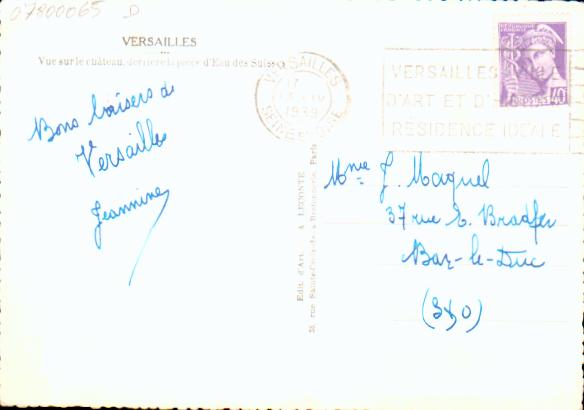 07800065 D
VERSAILLES
Vue sur le château, derrière la pièce d'Eau des Suisses
Bons baisers de
Versailles
Jeannine
VERSAILLES
17
1939
SEINE ET OISE
VERSAILLES
D'ART ET D'
RÉSIDENCE IDÉALE
40
Mme J. Maquel
37 rue E. Bradfer
Bar-le-Duc
Edit. d'Art. A LECONTE
38, rue Sainte-Croix-de-la-Bretonnerie, Paris